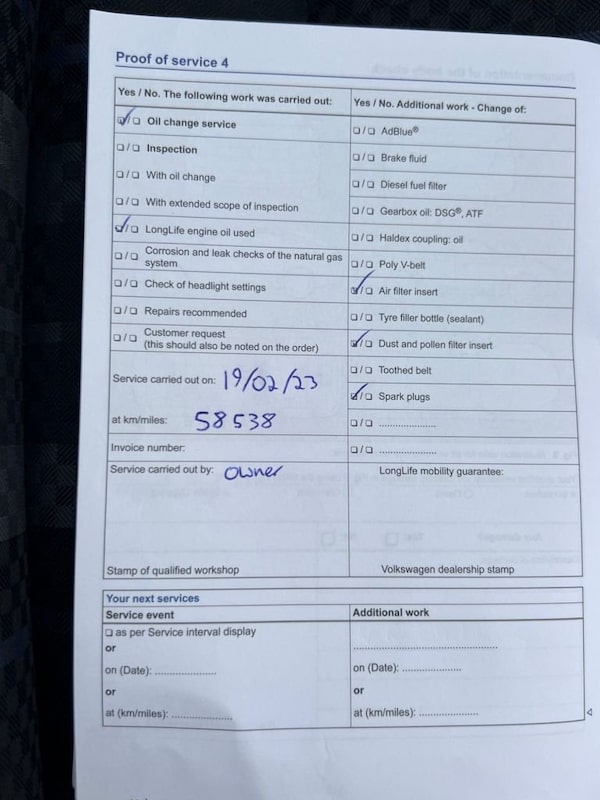 Proof of service 4
Yes / No. The following work was carried out:
☑/☐ Oil change service
☐/☐ Inspection
☐/☐ With oil change
☐/☐ With extended scope of inspection
☑/☐ LongLife engine oil used
☐/☐ Corrosion and leak checks of the natural gas
system
☐/☐ Check of headlight settings
☐/☐ Repairs recommended
☐/☐ Customer request
(this should also be noted on the order)
Service carried out on: 19/02/23
at km/miles: 58538
Invoice number:
Service carried out by: owner
Stamp of qualified workshop
Yes / No. Additional work - Change of:
☐/☐ AdBlue®
☐/☐ Brake fluid
☐/☐ Diesel fuel filter
☐/☐ Gearbox oil: DSG®, ATF
☐/☐ Haldex coupling: oil
☐/☐ Poly V-belt
☑/☐ Air filter insert
☐/☐ Tyre filler bottle (sealant)
☑/☐ Dust and pollen filter insert
☐/☐ Toothed belt
☑/☐ Spark plugs
☐/☐ ....................
☐/☐ ....................
LongLife mobility guarantee:
Volkswagen dealership stamp
Your next services
Service event
☐ as per Service interval display
or
on (Date): ....................
or
at (km/miles): ....................
Additional work
..................................................
on (Date): ....................
or
at (km/miles): ....................